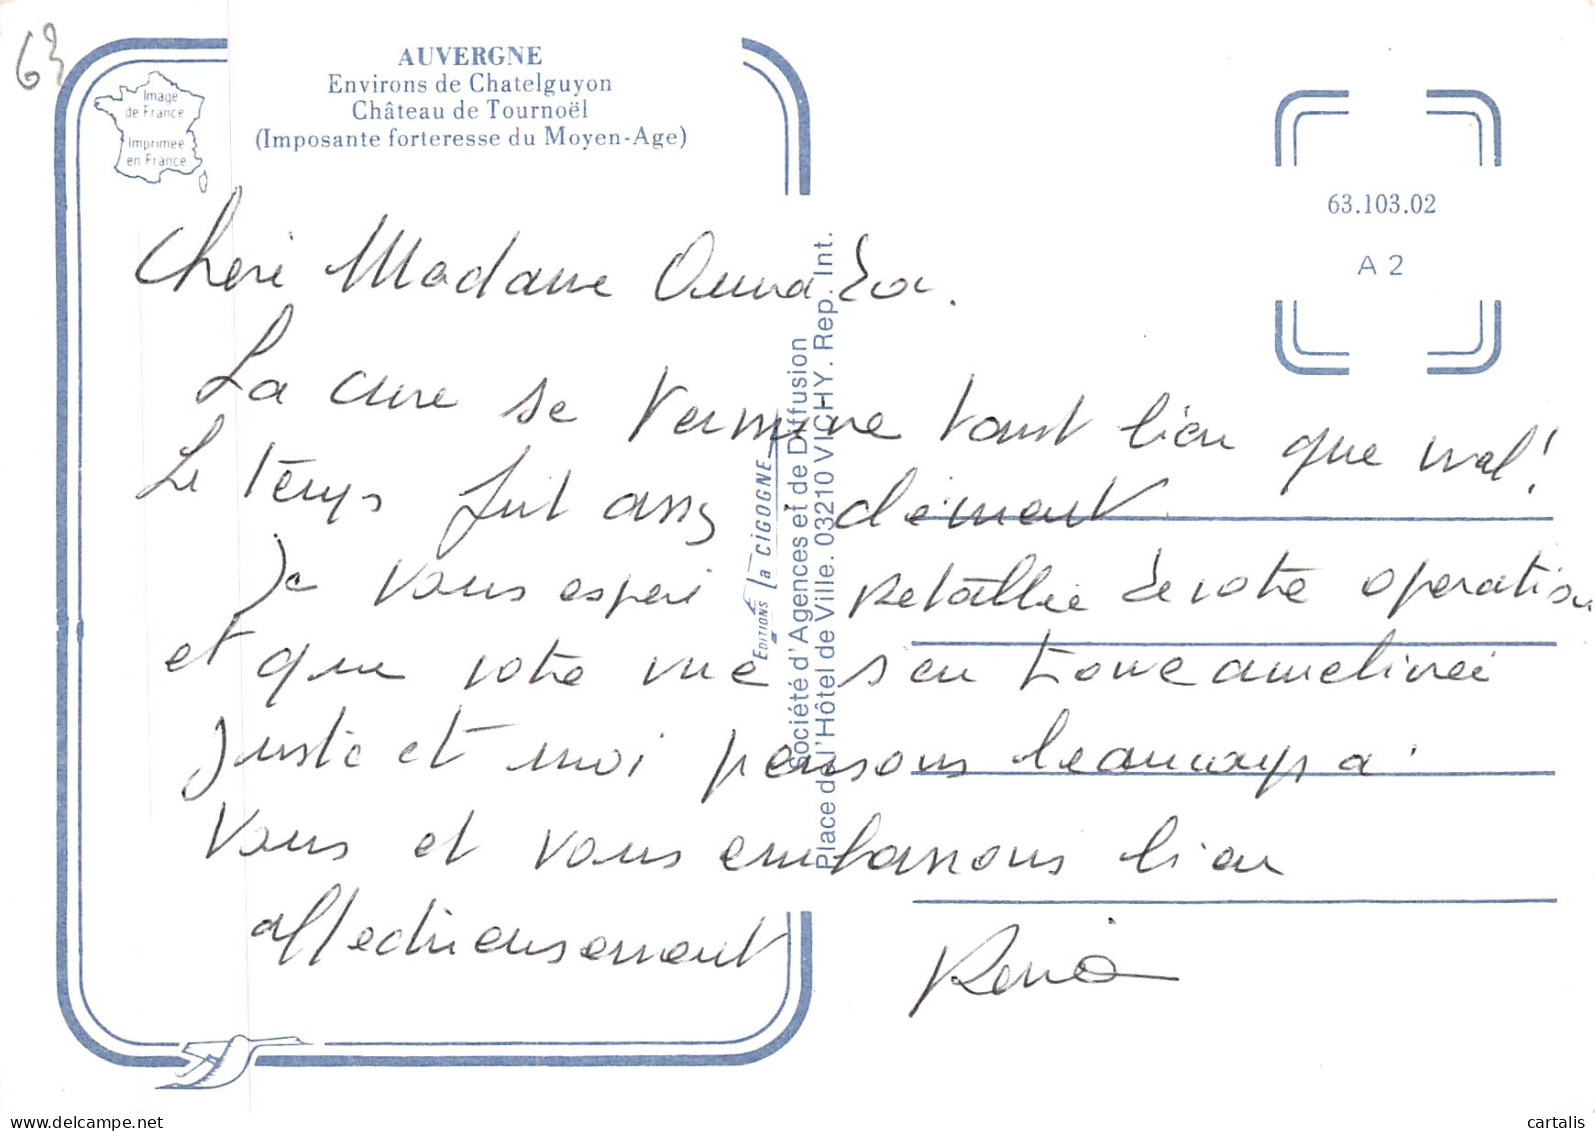 63
AUVERGNE
Environs de Chatelguyon
Château de Tournoël
(Imposante forteresse du Moyen-Age)
Image
de France
Imprimée
en France
63.103.02
A 2
Chère Madame
La cure se termine tant bien que mal !
Le temps fut assez clément
Je vous espère retablie de votre operation
et que votre vue s'en trouve ameliorée
Juste et moi pensons beaucoup a
Vous et vous embrassons bien
affectueusement
EDITIONS la CIGOGNE
Société d'Agences et de Diffusion
Place de l'Hôtel de Ville. 03210 VICHY. Rep. Int.
www.delcampe.net
cartalis